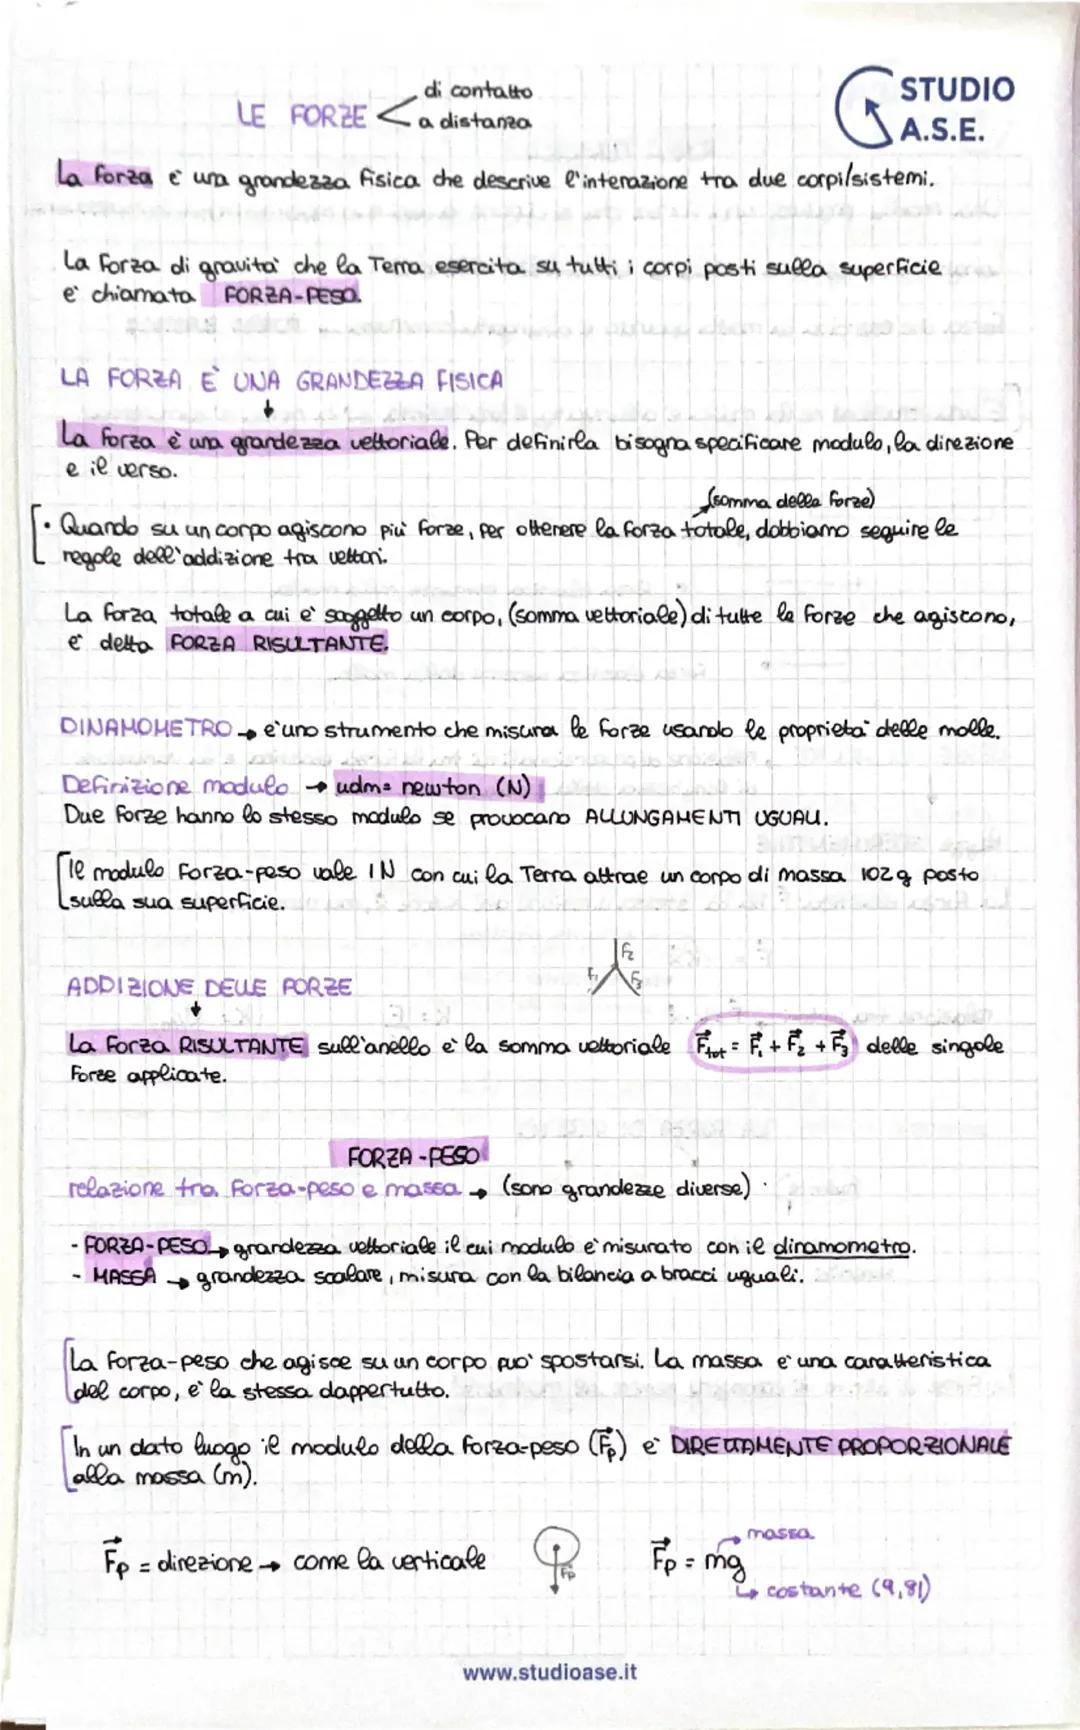 STUDIO
A.S.E.
di contatto
LE FORZE < a distanza
La forza è una grandezza fisica che descrive l'interazione tra due corpi/sistemi.
La forza di gravita' che la Terra esercita su tutti i corpi posti sulla superficie
e' chiamata FORZA-PESO.
LA FORZA E' UNA GRANDEZZA FISICA
↓
La forza è una grandezza vettoriale. Per definirla bisogna specificare modulo, la direzione
e il verso.
(somma delle forze)
• Quando su un corpo agiscono più forze, per ottenere la forza totale, dobbiamo seguire le
regole dell'addizione tra vettori.
La forza totale a cui e' soggetto un corpo, (somma vettoriale) di tutte le forze che agiscono,
e' detta FORZA RISULTANTE.
DINAMOMETRO → e' uno strumento che misura le forze usando le proprieta' delle molle.
Definizione modulo → udm= newton (N)
Due forze hanno lo stesso modulo se provocano ALLUNGAMENTI UGUALI.
Il modulo forza-peso vale 1N con cui la Terra attrae un corpo di massa 102g posto
sulla sua superficie.
F₂
F₁ F₃
ADDIZIONE DELLE FORZE
↓
La forza RISULTANTE sull'anello e' la somma vettoriale F⃗tot = F⃗₁ + F⃗₂ + F⃗₃ delle singole
forze applicate.
FORZA-PESO
relazione tra forza-peso e massa → (sono grandezze diverse)
- FORZA-PESO → grandezza vettoriale il cui modulo e' misurato con il dinamometro.
- MASSA → grandezza scalare, misura con la bilancia a bracci uguali.
La forza-peso che agisce su un corpo puo' spostarsi. La massa e' una caratteristica
del corpo, e' la stessa dappertutto.
In un dato luogo il modulo della forza-peso (F⃗p) e' DIRETTAMENTE PROPORZIONALE
alla massa (m).
→ massa
F⃗p = direzione → come la verticale Fp F⃗p = mg
↳ costante (9,81)
www.studioase.it